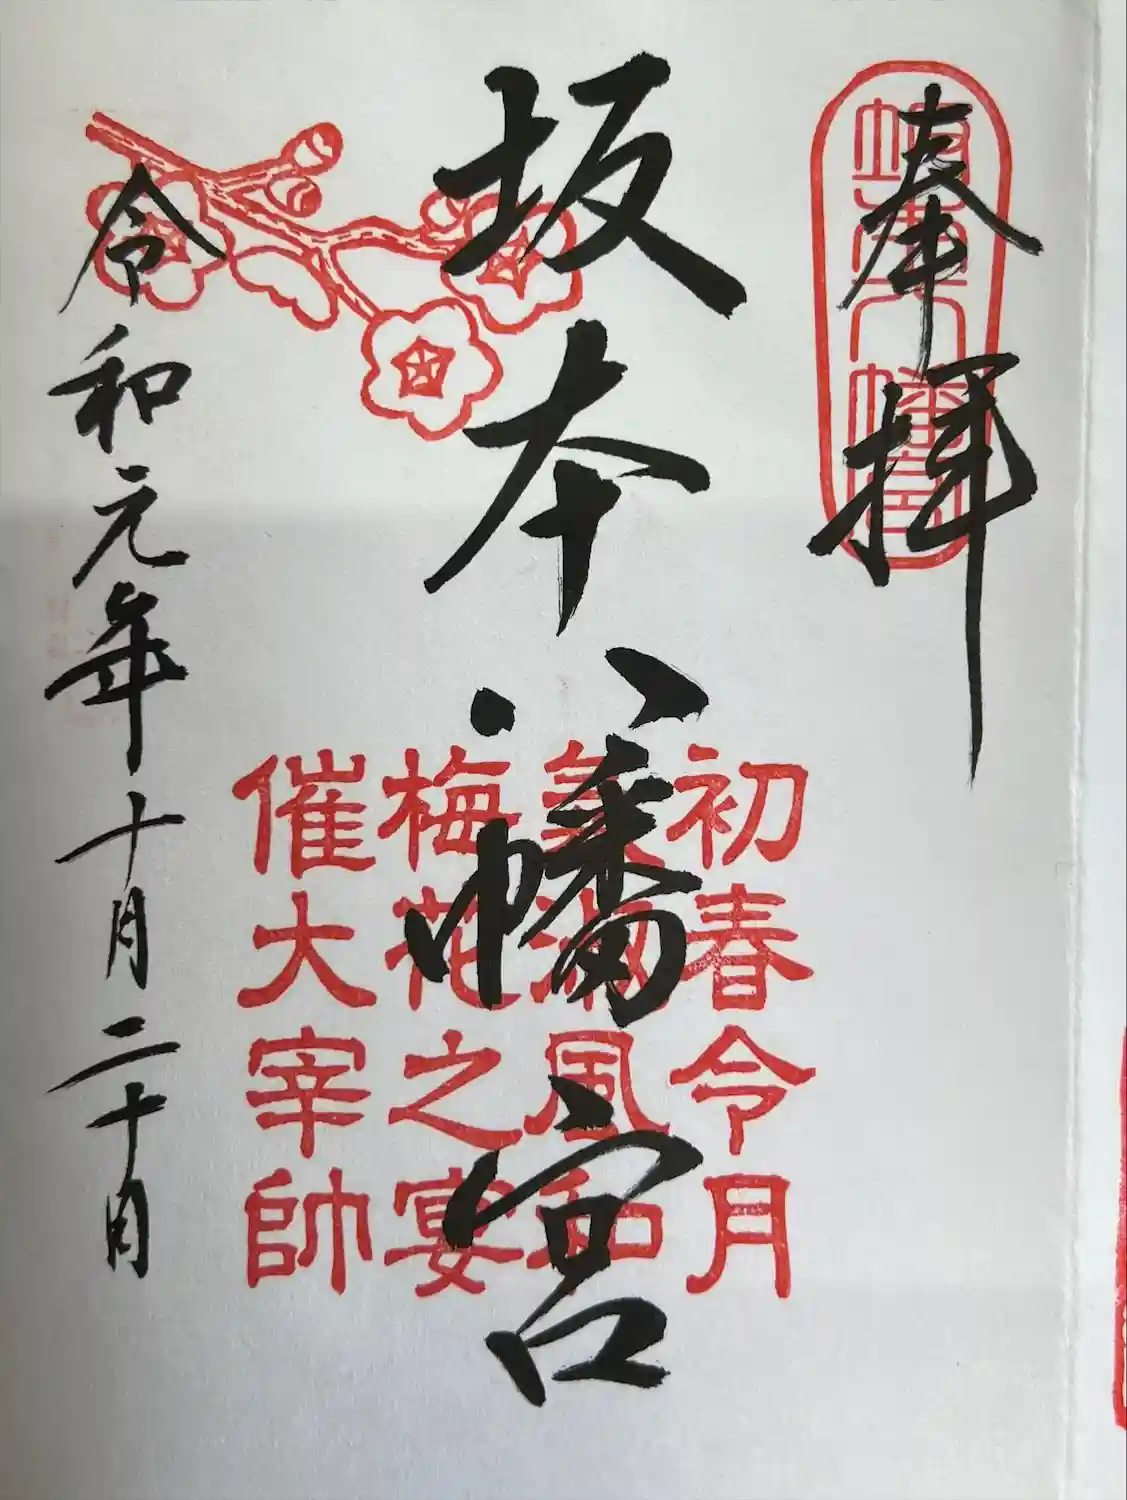 奉拝
坂本八幡宮
初春令月
風和
梅花之宴
催大宰帥
令和元年十月二十日